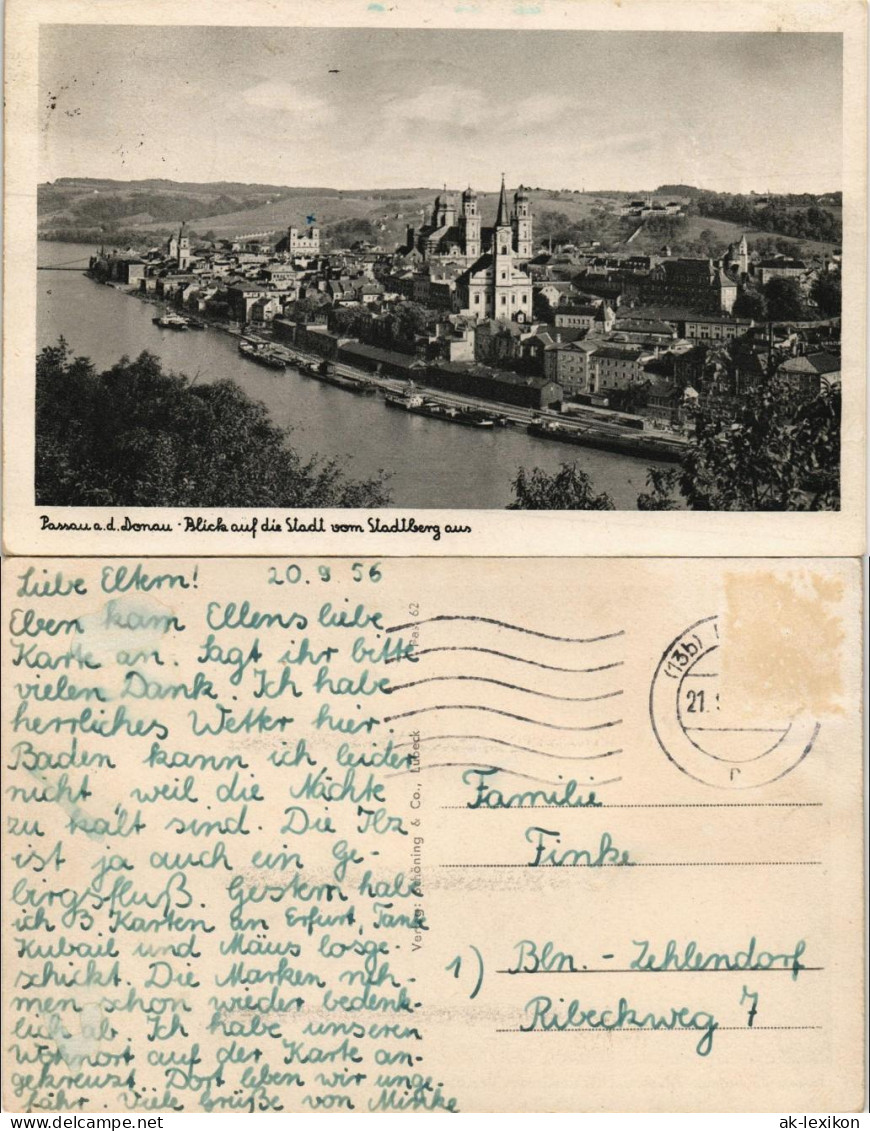 Passau a.d. Donau · Blick auf die Stadt vom Stadtberg aus
Liebe Eltern! 20.9.56
Eben kam Ellens liebe
Karte an. Sagt ihr bitte
vielen Dank. Ich habe
herrliches Wetter hier.
Baden kann ich leider
nicht, weil die Nächte
zu kalt sind. Die Ilz
ist ja auch ein Ge-
birgsfluß. Gestern habe
ich 3 Karten an Erfurt, Tante
und Mäus losge-
schickt. Die Marken neh-
men schon wieder bedenk-
lich ab. Ich habe unseren
Wohnort auf der Karte an-
gekreuzt. Dort leben wir unge-
fähr. Viele Grüße von Minke
62
Verlag: Schöning & Co., Lübeck
(13b)
21.
Familie
Finke
1) Bln. - Zehlendorf
Ribeckweg 7
ak-lexikon